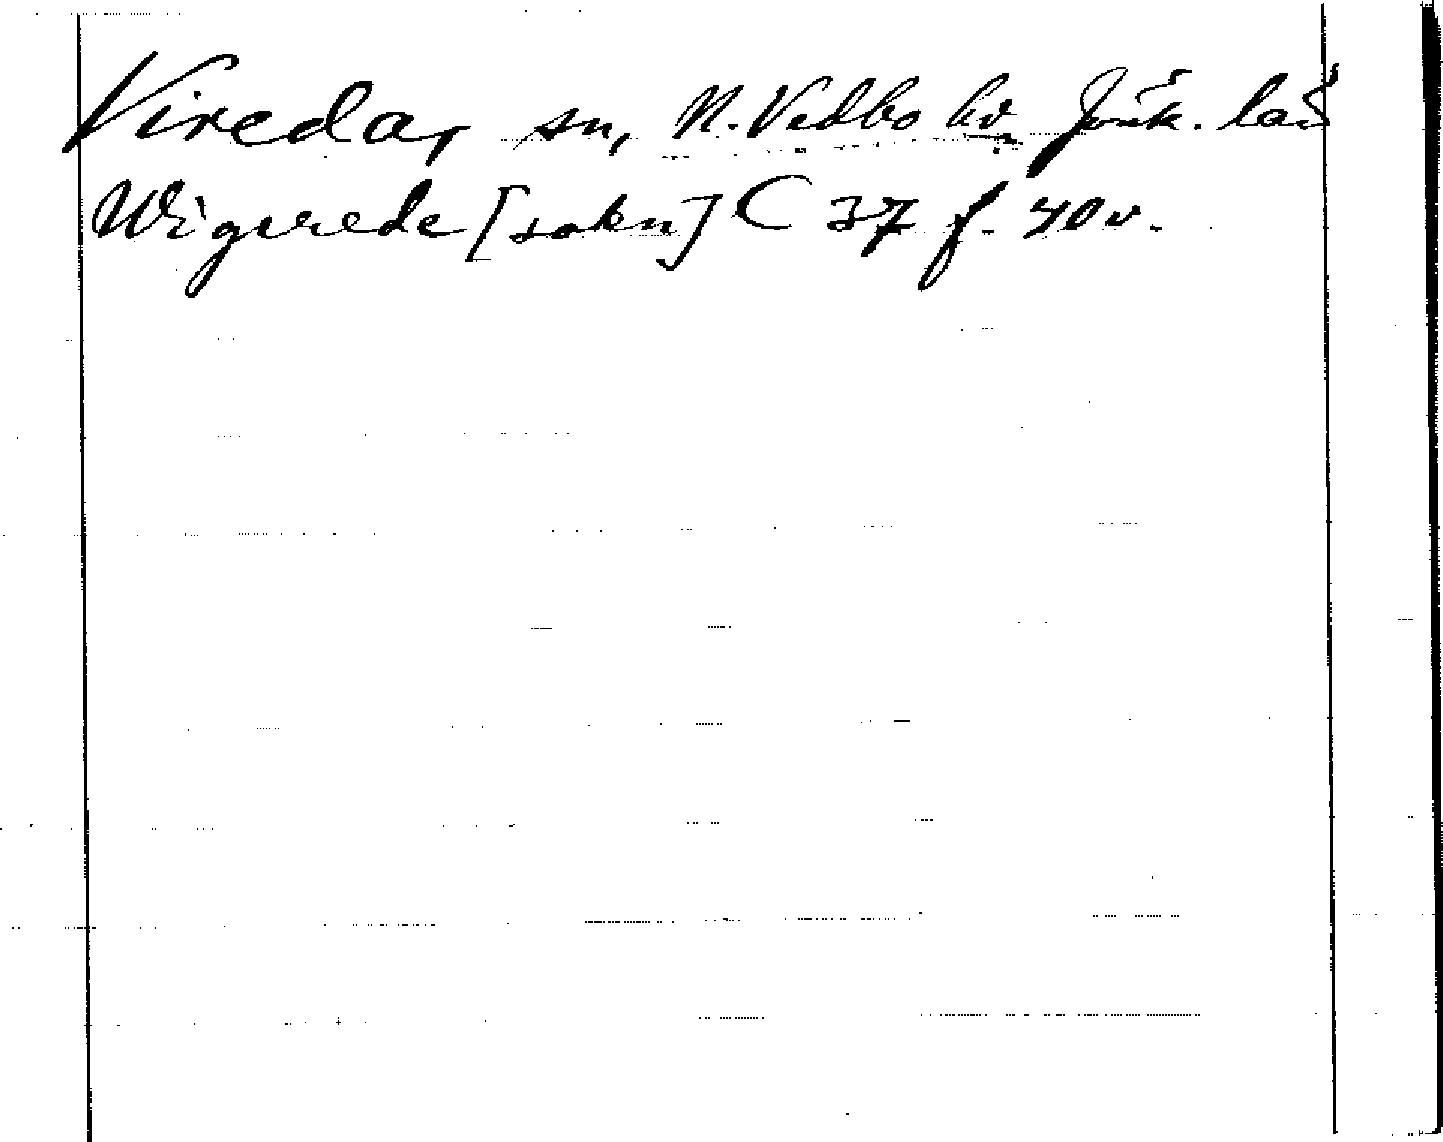 Vireda, sn, N. Vedbo hd Jönk. län
Wigerede [sokn] C 37 f. 40v.